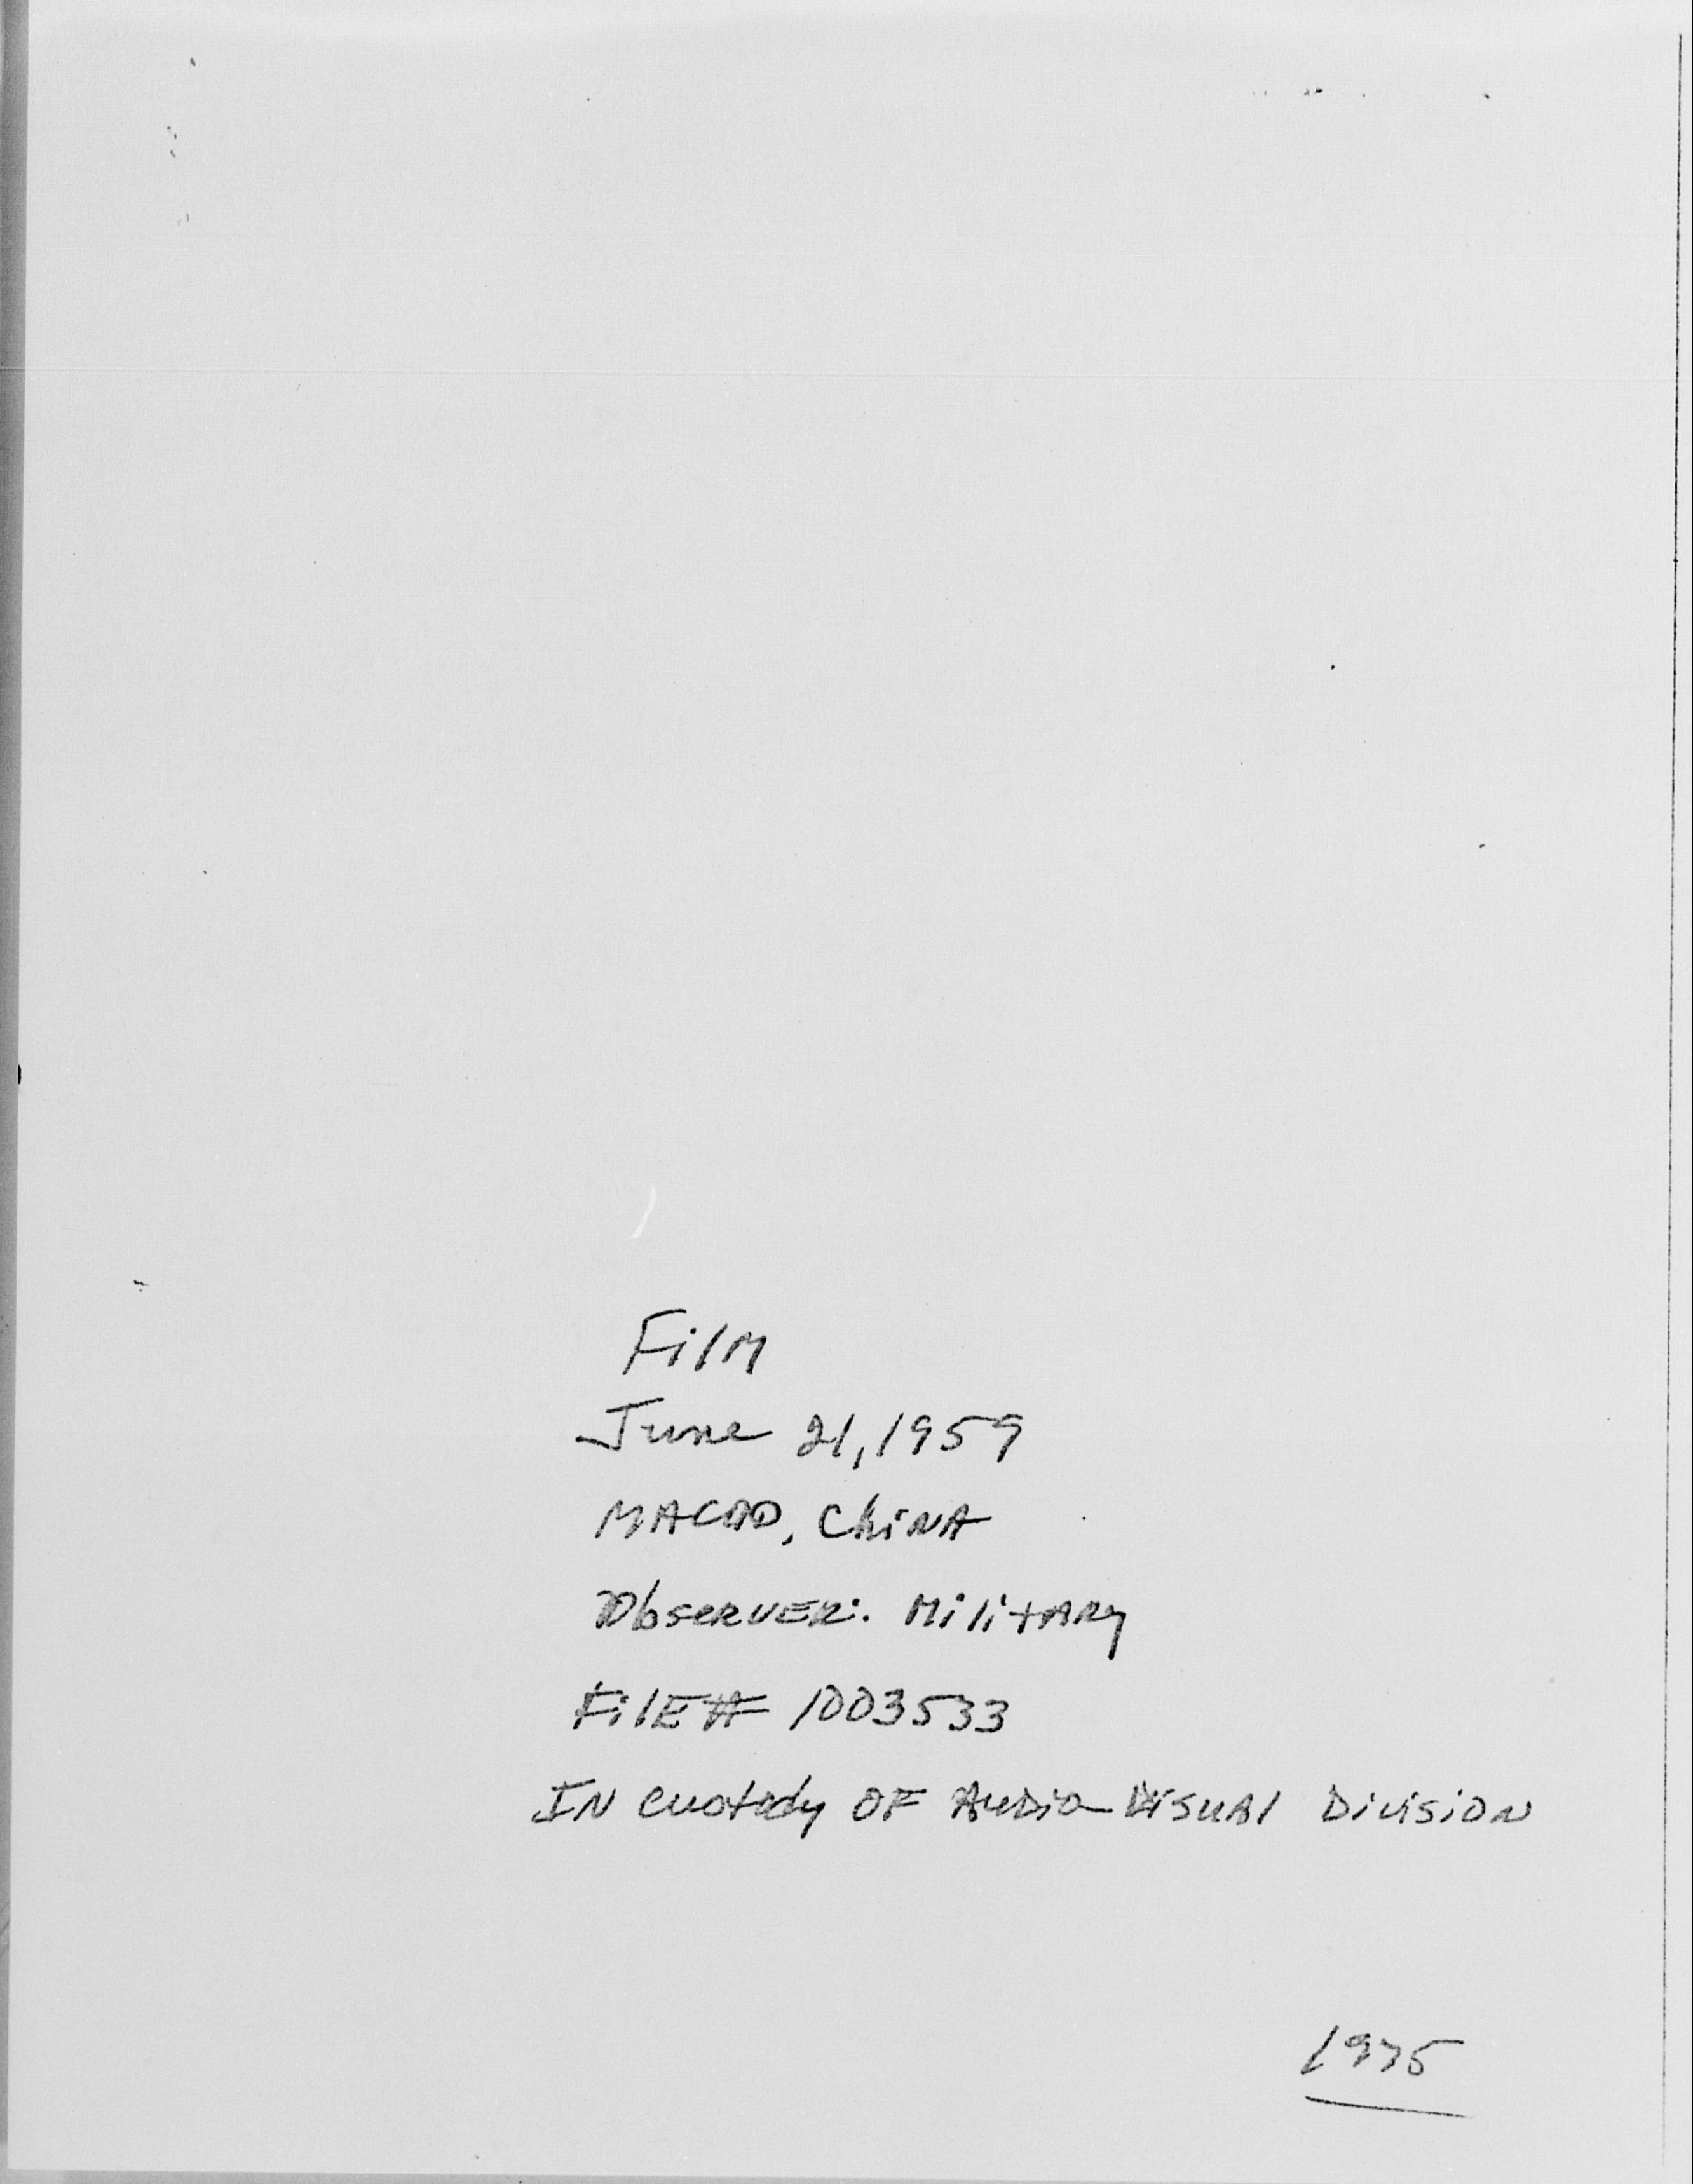 Film
June 21, 1959
MACAO, China
Observer: Military
File# 1003533
In custody of Audio-Visual Division
1975